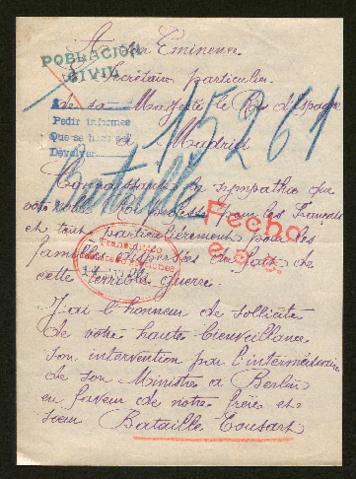 A Son Eminence
POBLACION
CIVIL
Secrétaire particulier
de sa Majesté le Roi d'Espagne
Pedir informes
Que se
Devolver
à Madrid
15261
Bataille
Connaissant la sympathie que
votre professe pour les Français
Fecho
et tout particulièrement pour les
familles dispersées du fait de
cette terrible guerre.
J'ai l'honneur de solliciter
de votre haute bienveillance
son intervention par l'intermédiaire
de son Ministre à Berlin
en faveur de notre frère et
sœur Bataille Tousart